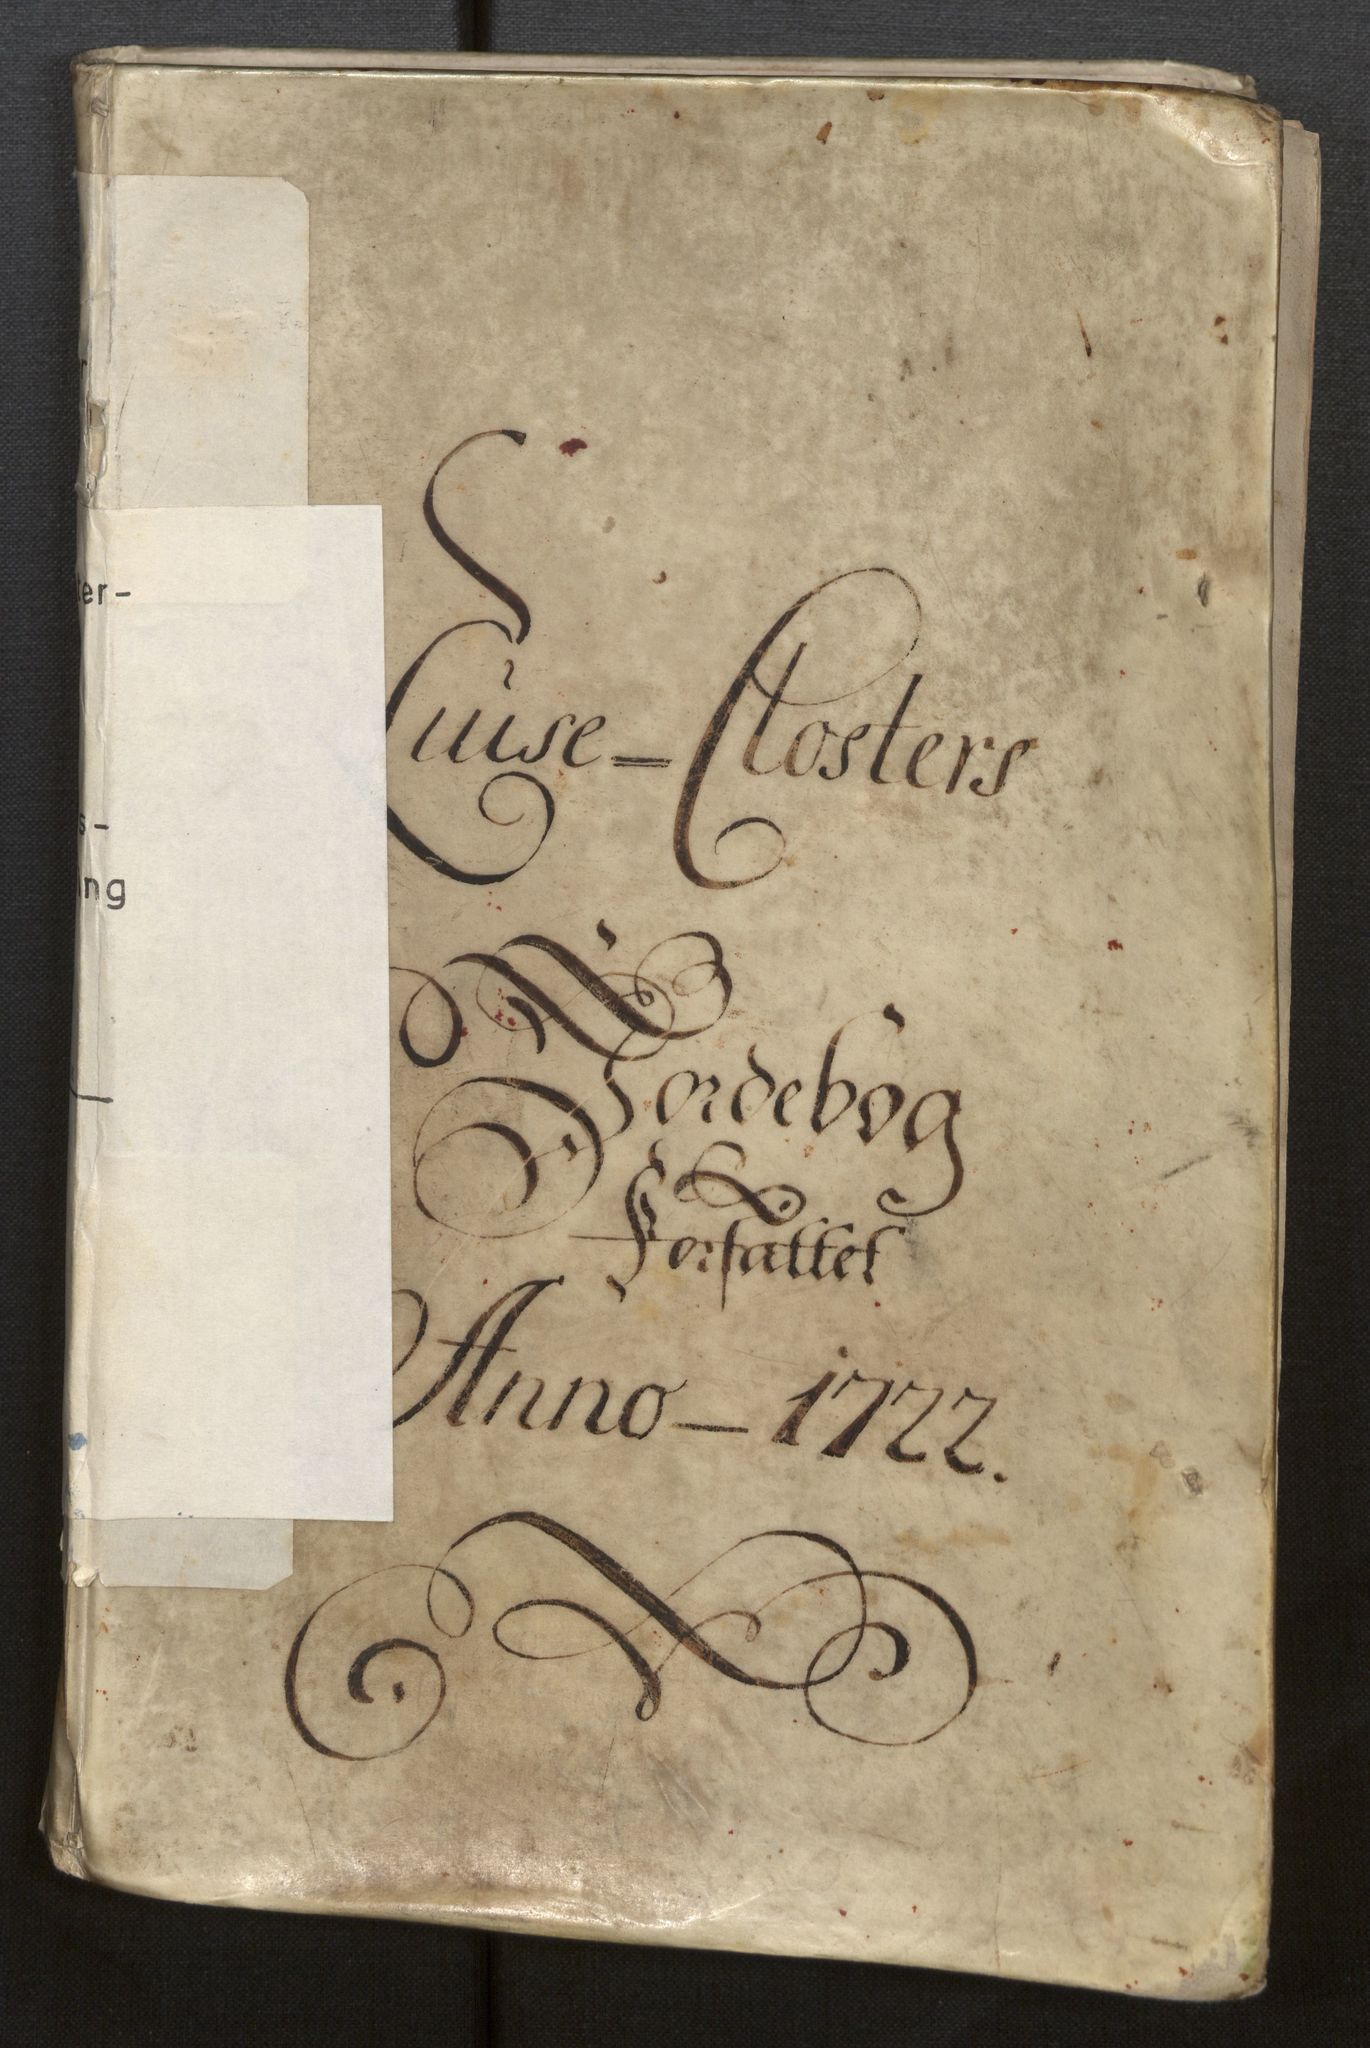 er-
s-
ng
Luise-Closters
Jordebog
Forfattet
Anno-1722.